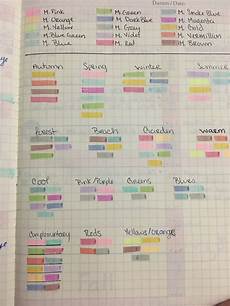 Datum / Date:
M. Pink M. Green M. Under Blue
M. Orange M. Dark Blue M. Magenta
M. Yellow M. Gray M. Gold
M. Blue Green M. Violet M. Vermillion
M. Blue M. Red M. Brown
Autumn Spring Winter Summer
Forest Beach Garden Warm
Cool Pink/Purple Greens Blues
Complimentary Reds Yellows/Oranges